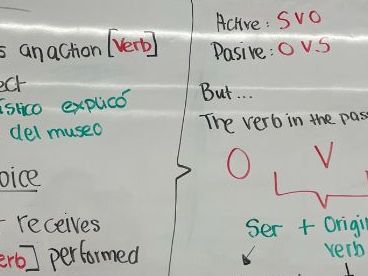 s an action [Verb]
ect
ístico explicó
del museo
oice
receives
erb] performed
Active: SVO
Pasive: O V.S
But...
The verb in the pas
O V
Ser + Origi
verb